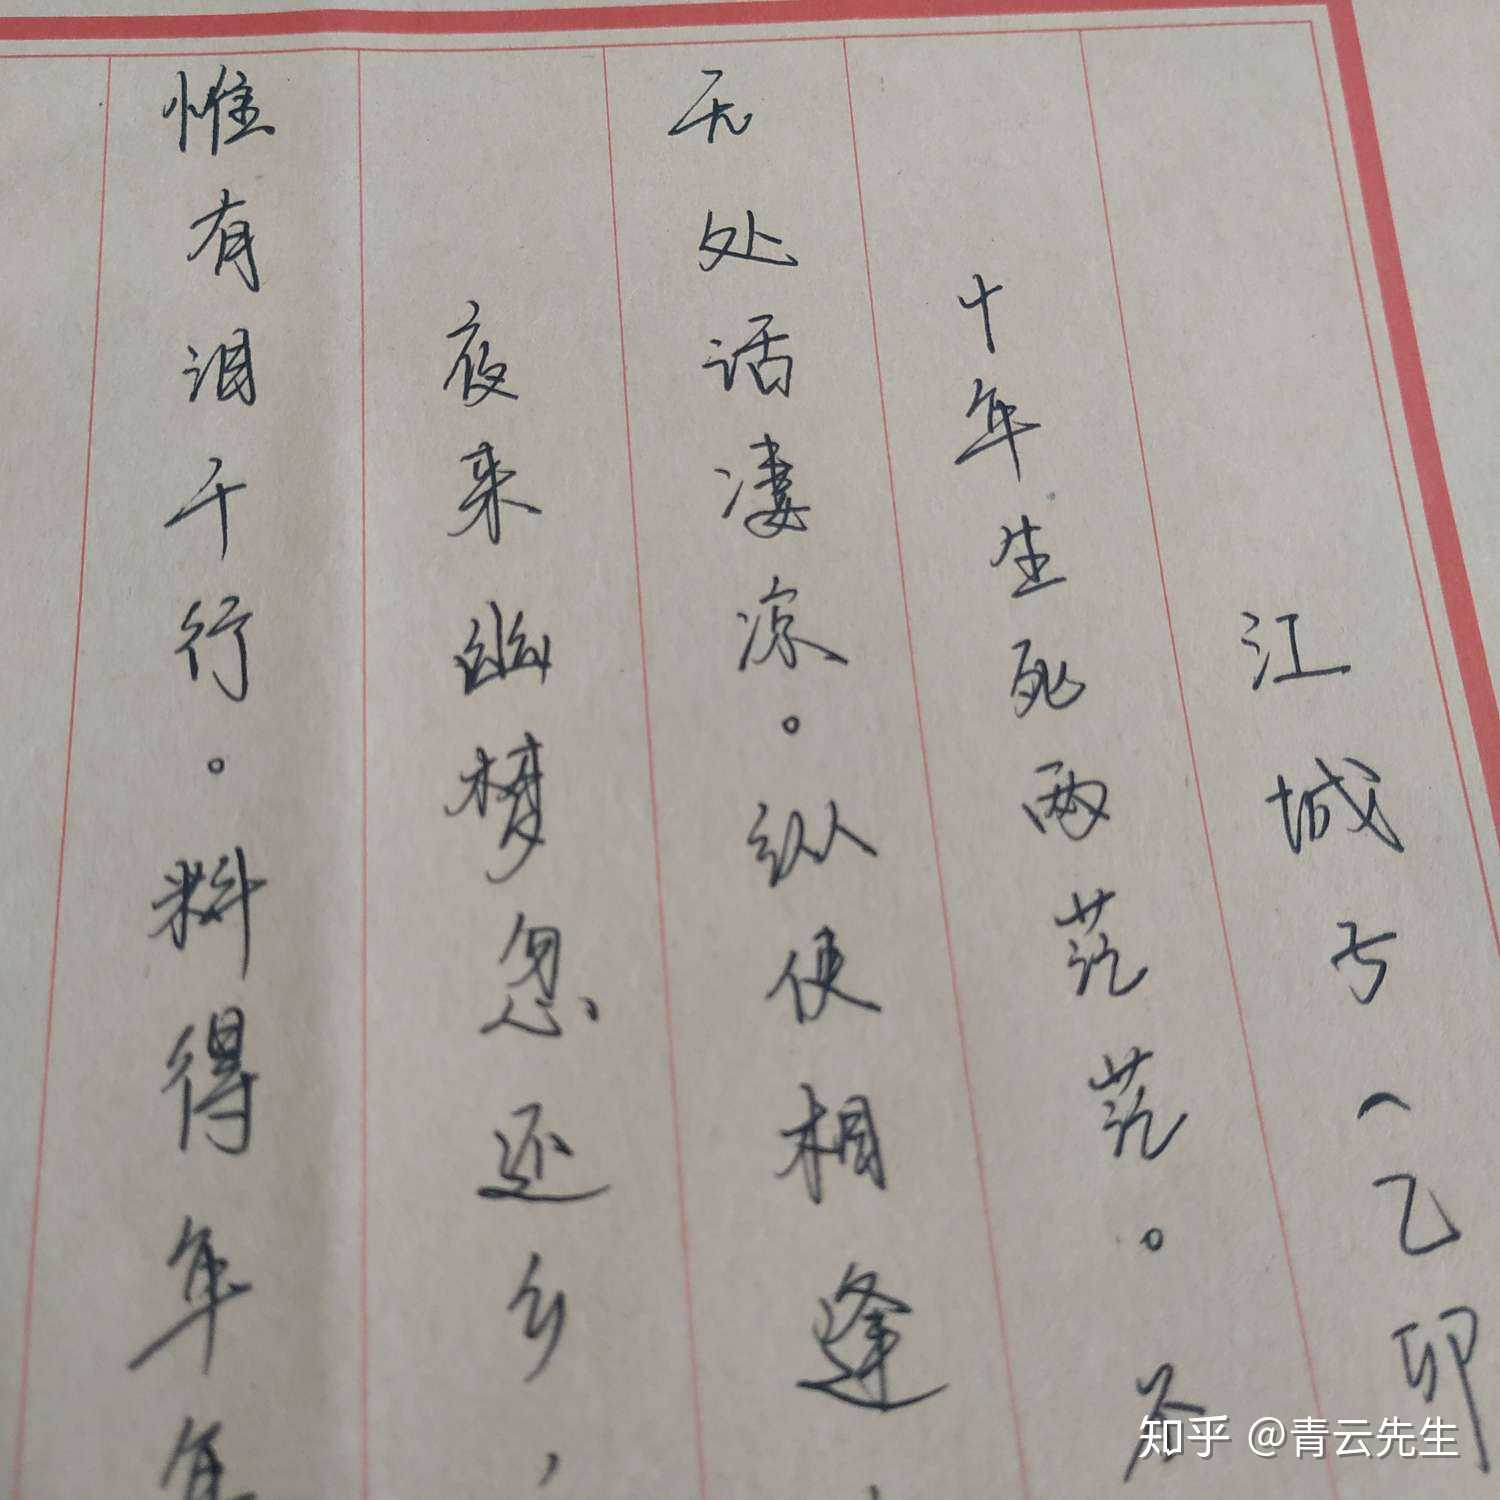 江城子（乙卯
十年生死两茫茫。不
无处话凄凉。纵使相逢，
夜来幽梦忽还乡，
惟有泪千行。料得年年
知乎 @青云先生